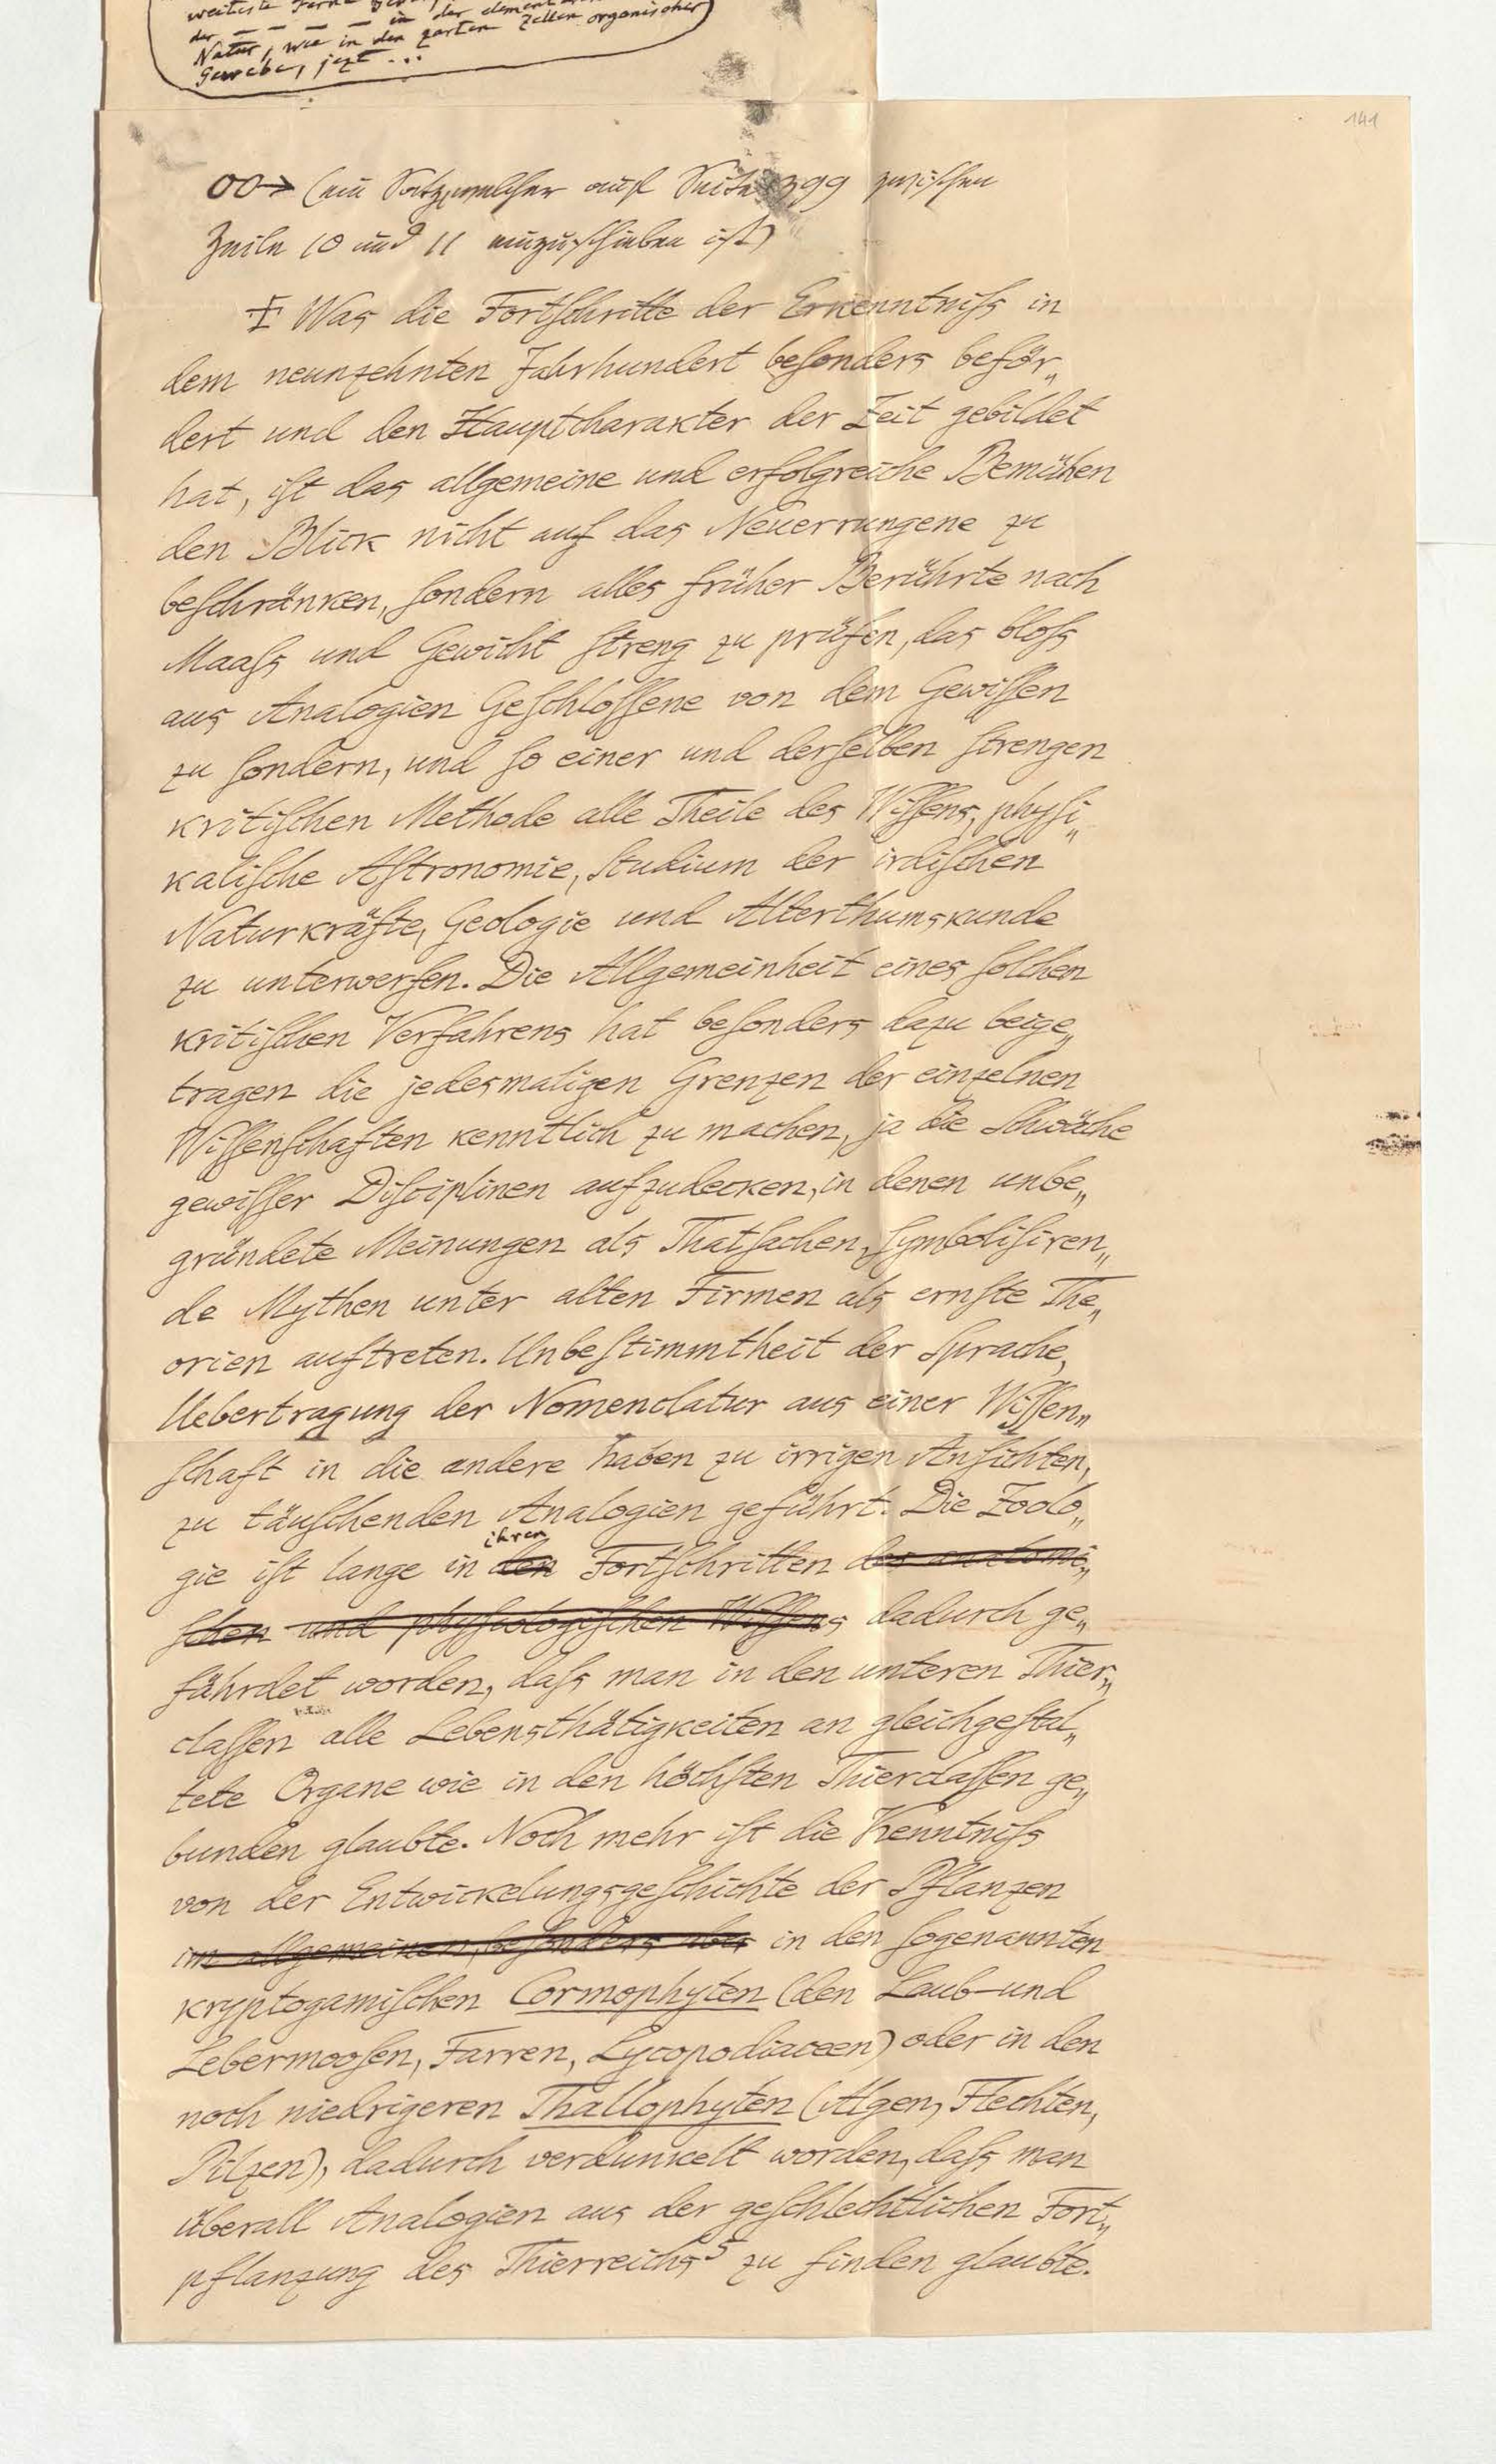 weiteste Ferne
der — — — — in der element
Natur, wie in den zarten Zellen organischer
Gewebe, jezt ...
141
00→ (ein Satz, welcher auf Seite 399 zwischen
Zeile 10 und 11 einzuschieben ist)
Was die Fortschritte der Erkenntniss in
dem neunzehnten Jahrhundert besonders beför„
dert und den Hauptcharakter der Zeit gebildet
hat, ist das allgemeine und erfolgreiche Bemühen
den Blick nicht auf das Neuerrungene zu
beschränken, sondern alles früher Berührte nach
Maass und Gewicht streng zu prüfen, das bloss
aus Analogien Geschlossene von dem Gewissen
zu sondern, und so einer und derselben strengen
kritischen Methode alle Theile des Wissens, physi„
kalische Astronomie, Studium der irdischen
Naturkräfte, Geologie und Alterthumskunde
zu unterwerfen. Die Allgemeinheit eines solchen
kritischen Verfahrens hat besonders dazu beige„
tragen die jedesmaligen Grenzen der einzelnen
Wissenschaften kenntlich zu machen, ja die Schwäche
gewisser Disciplinen aufzudecken, in denen unbe„
gründete Meinungen als Thatsachen, symbolisiren„
de Mythen unter alten Firmen als ernste The„
orien auftreten. Unbestimmtheit der Sprache,
Uebertragung der Nomenclatur aus einer Wissen„
schaft in die andere haben zu irrigen Ansichten,
zu täuschenden Analogien geführt. Die Zoolo„
ihren
gie ist lange in den Fortschritten des anatomi„
schen und physiologischen Wissens dadurch ge„
fährdet worden, dass man in den unteren Thier„
classen alle Lebensthätigkeiten an gleichgestal„
tete Organe wie in den höchsten Thierclassen ge„
bunden glaubte. Noch mehr ist die Kenntniss
von der Entwickelungsgeschichte der Pflanzen
im allgemeinen, besonders aber in den sogenannten
kryptogamischen Cormophyten (den Laub- und
Lebermoosen, Farren, Lycopodiaceen) oder in den
noch niedrigeren Thallophyten (Algen, Flechten,
Pilzen), dadurch verdunkelt worden, dass man
überall Analogien aus der geschlechtlichen Fort„
pflanzung des Thierreichs⁵ zu finden glaubte.